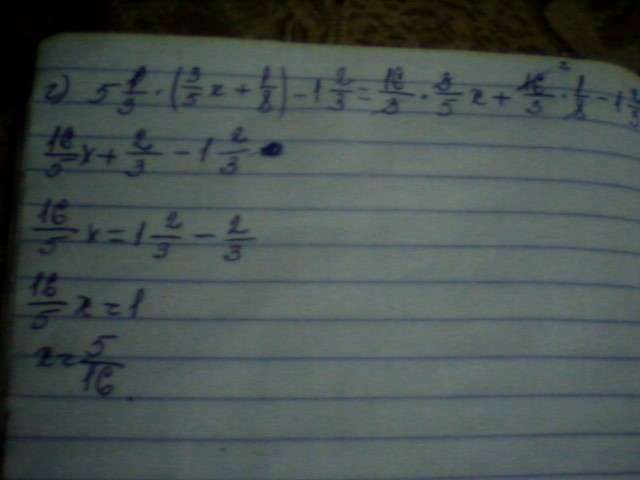 г) 5 1/3 · (3/5 x + 1/8) - 1 2/3 = 16/3 · 3/5 x + 16/3 2 · 1/8 - 1 2/3
16/5 x + 2/3 - 1 2/3
16/5 x = 1 2/3 - 2/3
16/5 x = 1
x = 5/16